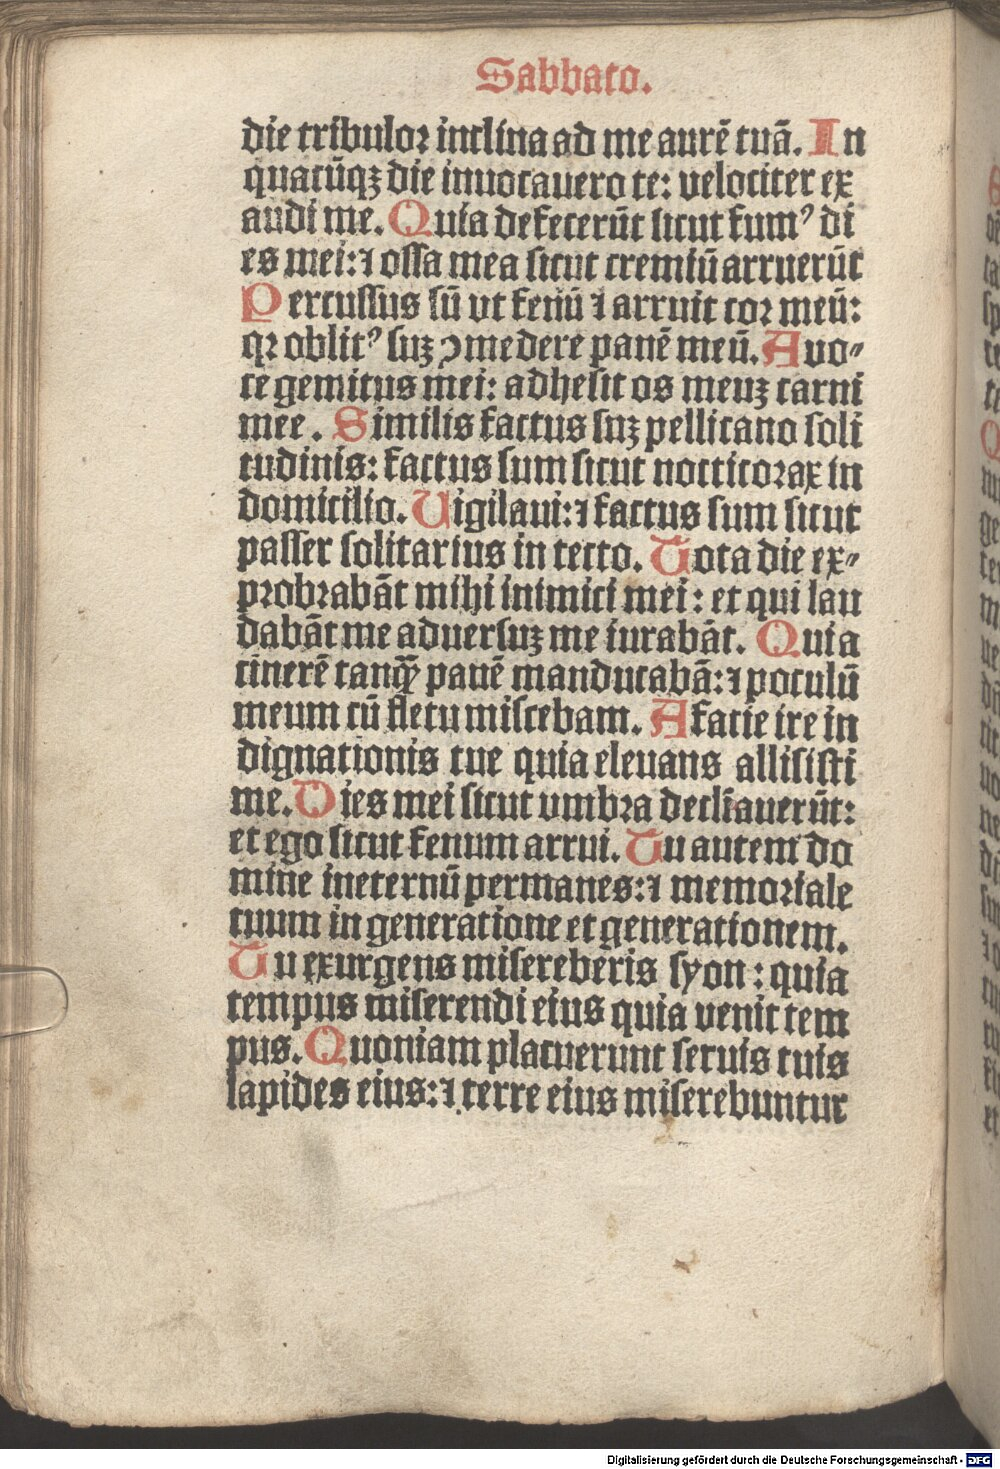 Sabbato.
die tribulor inclina ad me aurē tuā. In
quacūqꝫ die inuocauero te: velociter ex
audi me. Quia defecerūt sicut fumꝰ di
es mei: ⁊ ossa mea sicut cremiū arruerūt
Percussus sū vt fenū ⁊ arruit cor meū:
qꝛ oblitꝰ suꝫ ↄmedere panē meū. A vo-
ce gemitus mei: adhesit os meuꝫ carni
mee. Similis factus suꝫ pellicano soli
tudinis: factus sum sicut nocticorax in
domicilio. Uigilaui: ⁊ factus sum sicut
passer solitarius in tecto. Tota die ex-
probrabāt mihi inimici mei: et qui lau
dabāt me aduersuꝫ me iurabāt. Quia
cinerē tanqꝫ̄ panē manducabā: ⁊ poculū
meum cū fletu miscebam. A facie ire in
dignationis tue quia eleuans allisisti
me. Dies mei sicut vmbra decliauerūt:
et ego sicut fenum arrui. Tu autem do
mine ineternū permanes: ⁊ memoriale
tuum in generatione et generationem.
Tu exurgens misereberis syon: quia
tempus miserendi eius quia venit tem
pus. Quoniam placuerunt seruis tuis
lapides eius: ⁊ terre eius miserebuntur
Digitalisierung gefördert durch die Deutsche Forschungsgemeinschaft - DFG